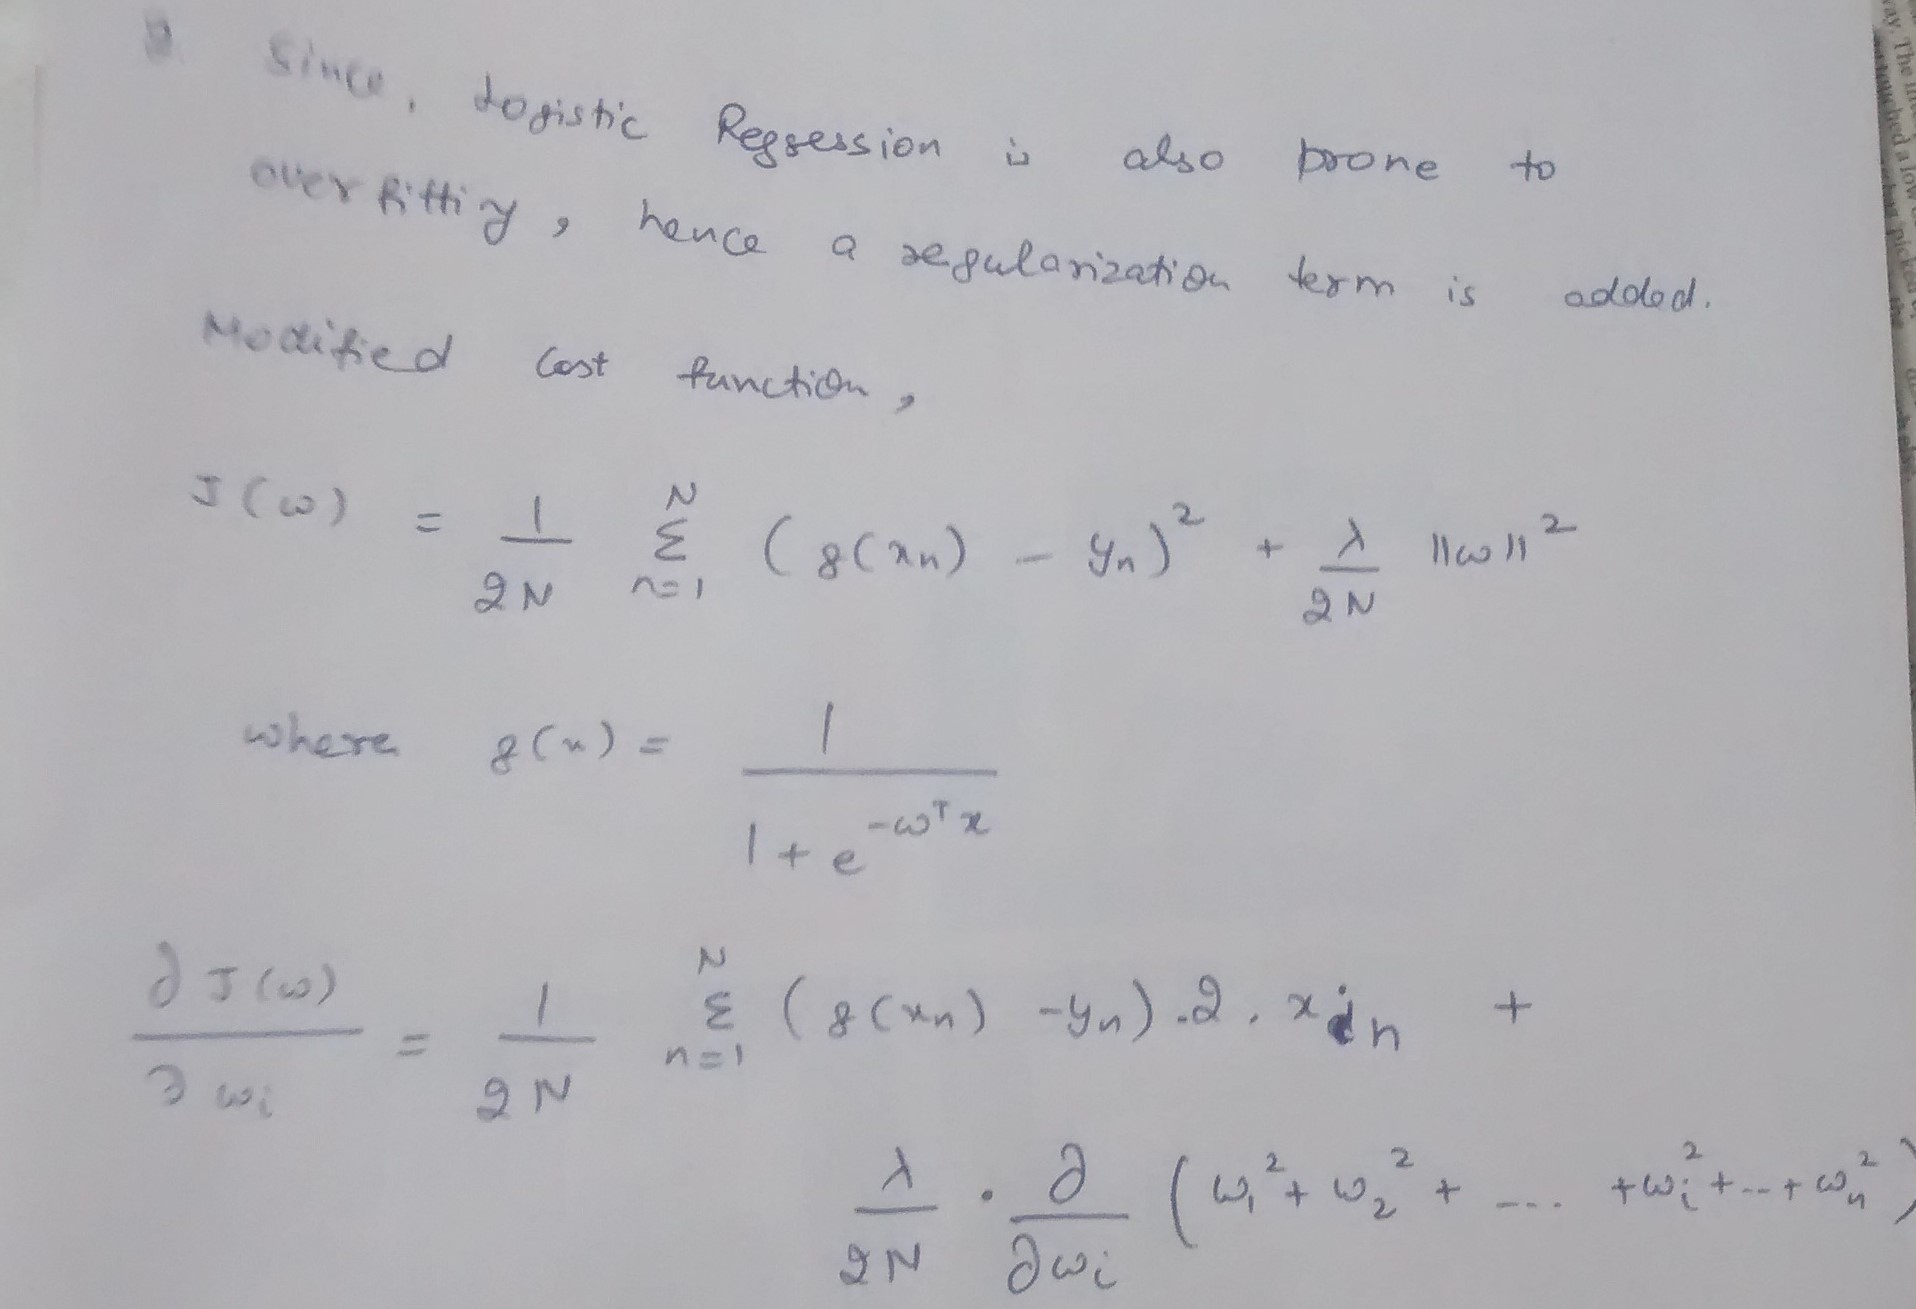 Since, Logistic Regression is also prone to
overfitting, hence a regularization term is added.
Modified Cost function,
J(ω) = 1/2N Σ_{n=1}^{N} (g(xn) - yn)² + λ/2N ||ω||²
where g(x) = 1/(1 + e^{-ω^T x})
∂J(ω)/∂ωi = 1/2N Σ_{n=1}^{N} (g(xn) - yn).2. x_{in} +
λ/2N . ∂/∂ωi (ω₁² + ω₂² + .... + ωi² + ... + ωn²)